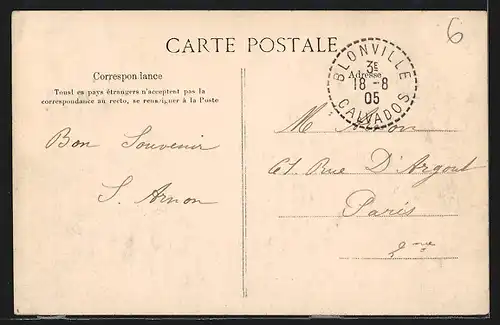 6
CARTE POSTALE
BLONVILLE
3E
18-8
05
CALVADOS
Correspondance
Adresse
Tousl es pays étrangers n'acceptent pas la
correspondance au recto, se renseigner à la Poste
Bon Souvenir
S. Arnon
M Arnon
61 Rue D'Argout
Paris
2me